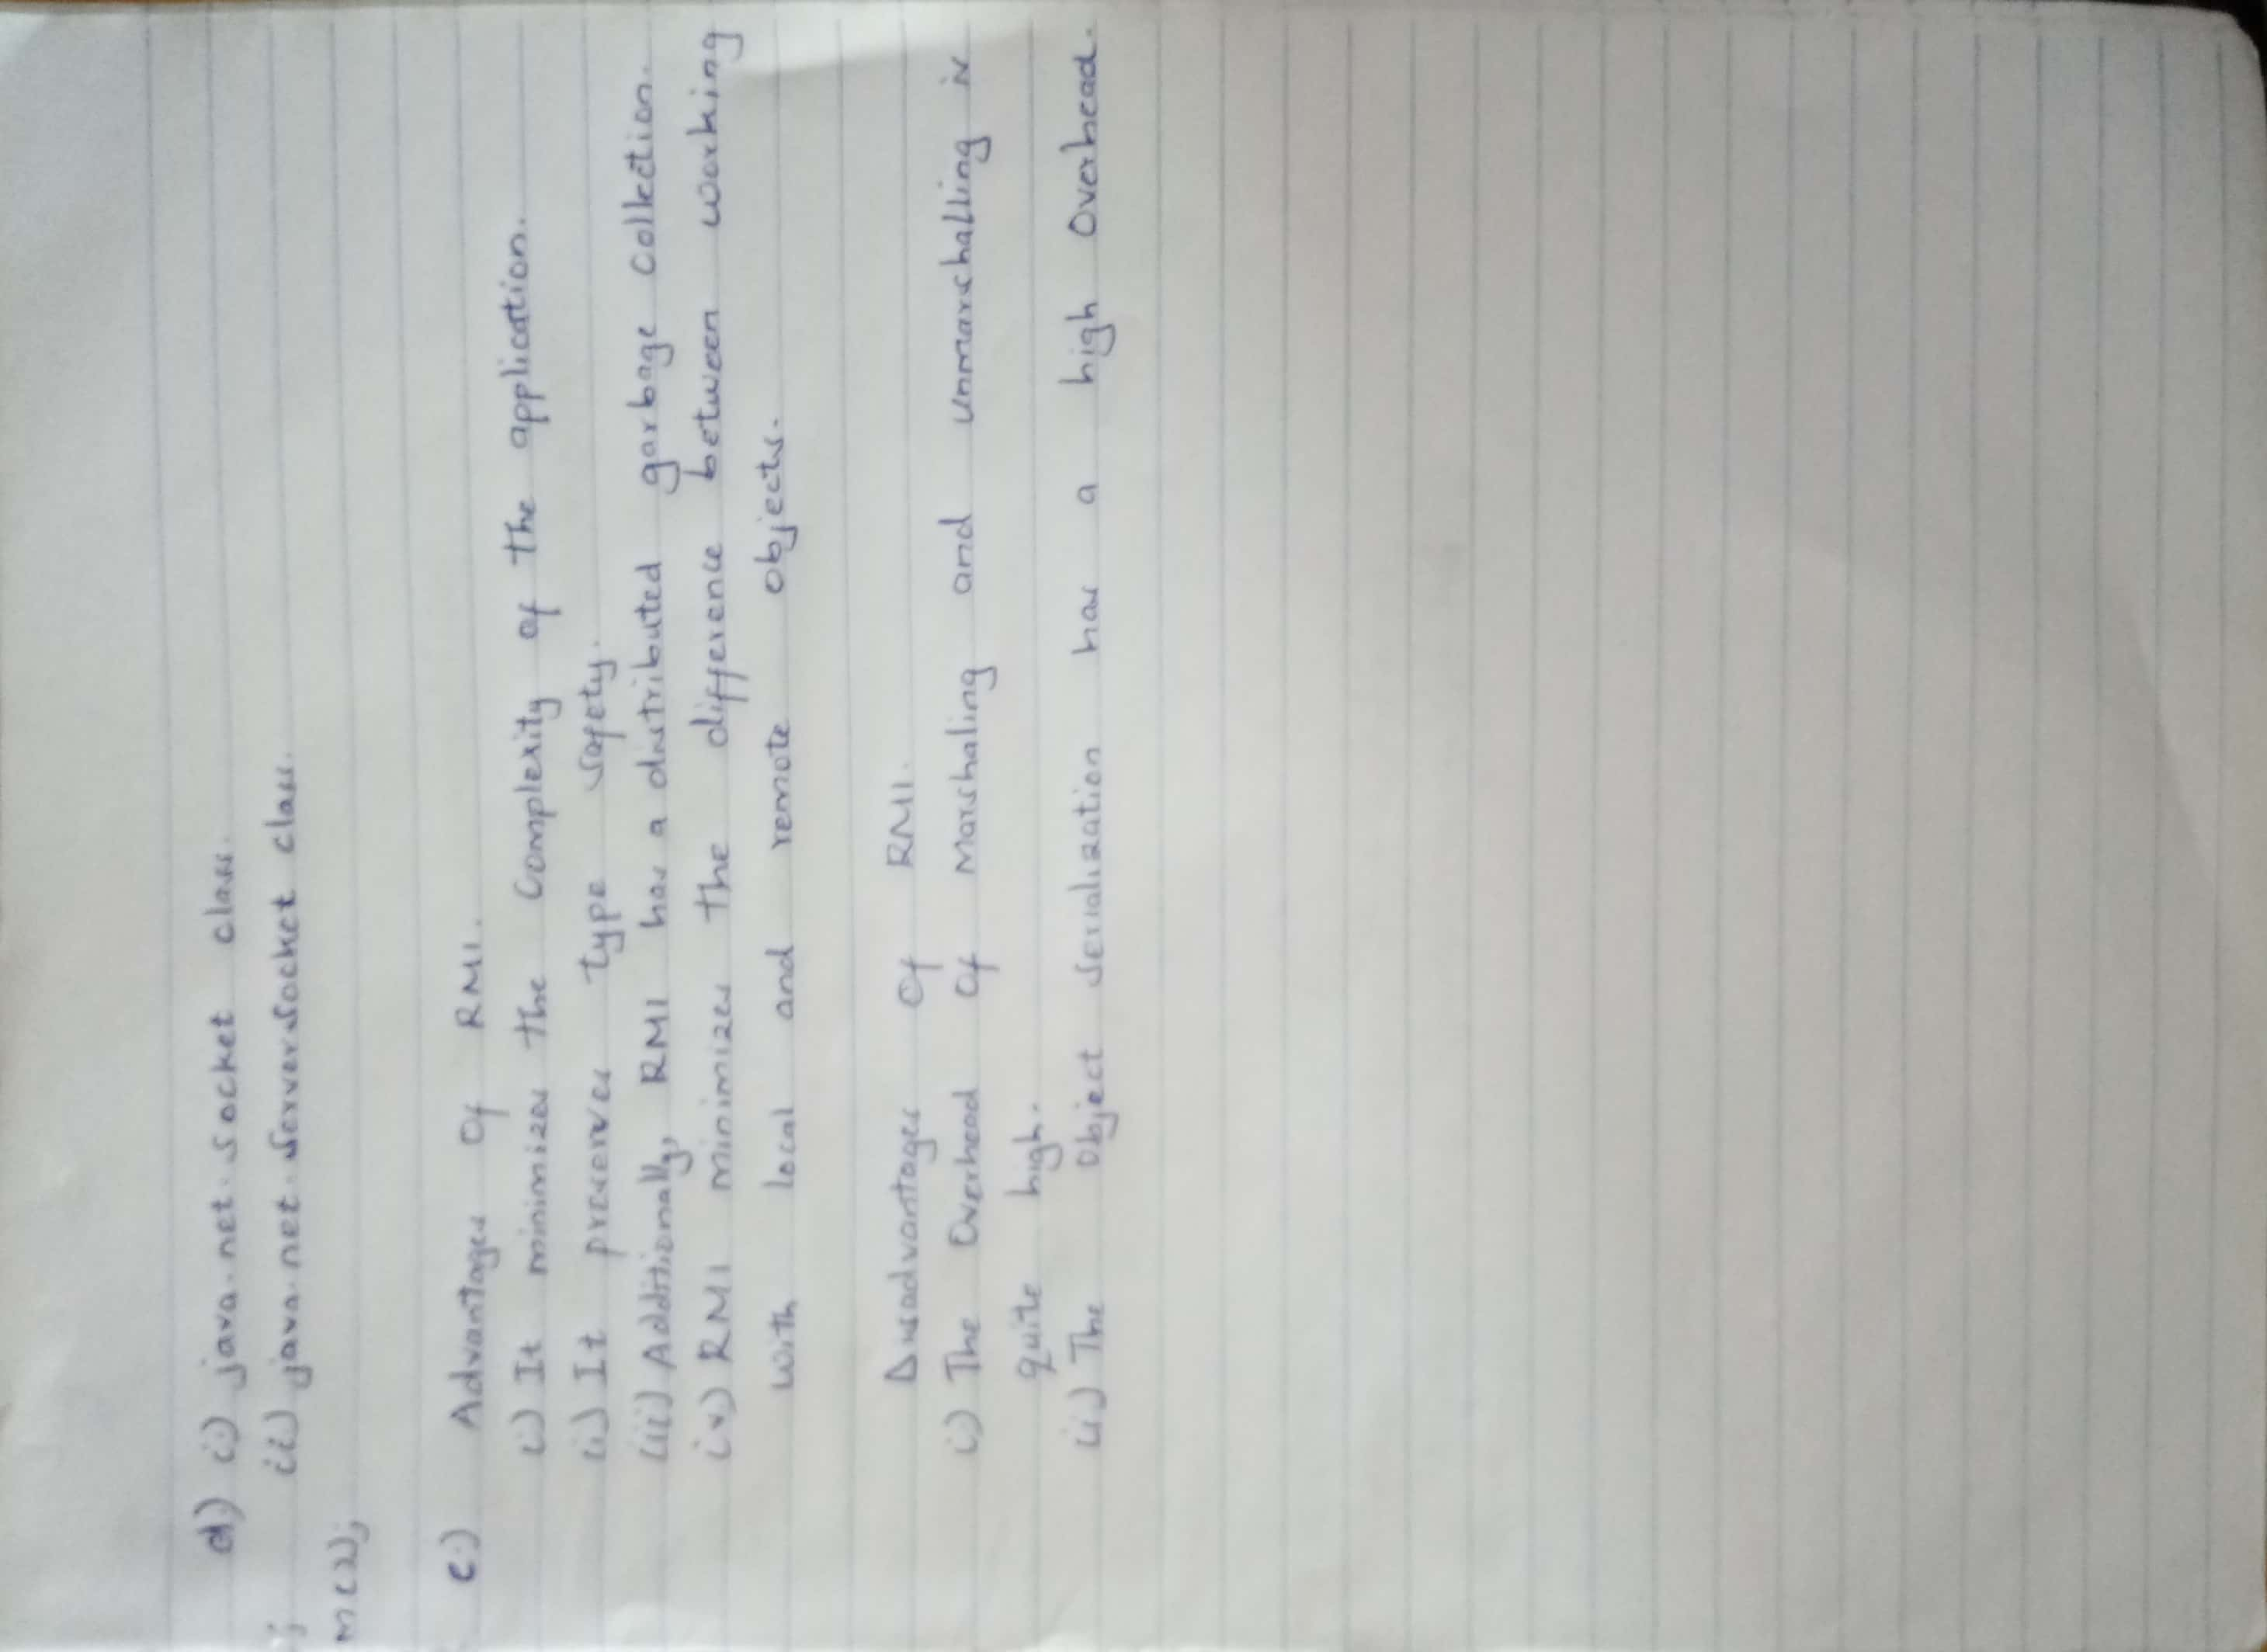 d) i) java.net.Socket class.
ii) java.net.ServerSocket class.
;
m(2);
e) Advantages Of RMI.
i) It minimizes the Complexity of the application.
ii) It preserves type safety.
iii) Additionally, RMI has a distributed garbage collection.
iv) RMI minimizes the difference between working
with local and remote objects.
Disadvantages Of RMI.
i) The Overhead Of Marshaling and unmarshalling is
quite high.
ii) The Object Serialization has a high Overhead.